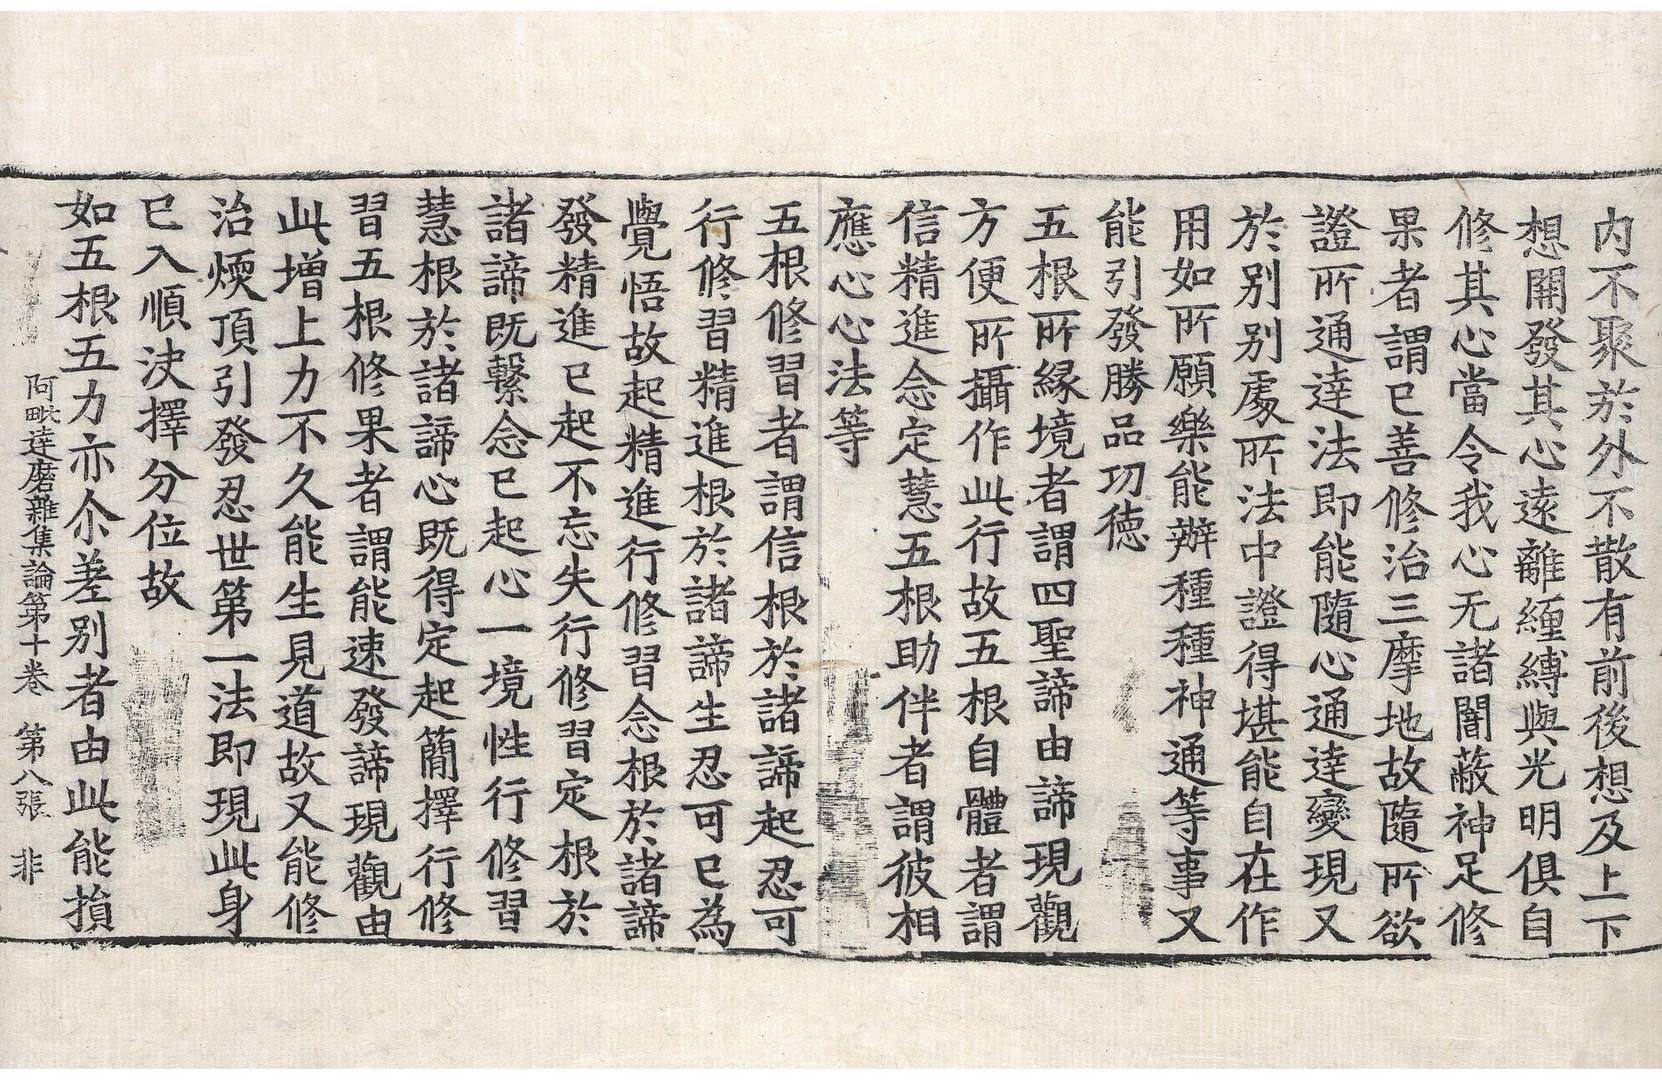 内不聚於外不散有前後想及上下
想開發其心遠離纏縛與光明俱自
修其心當令我心无諸闇蔽神足修
果者謂已善修治三摩地故隨所欲
證所通達法即能隨心通達變現又
於別別處所法中證得堪能自在作
用如所願樂能辦種種神通等事又
能引發勝品功德
五根所緣境者謂四聖諦由諦現觀
方便所攝作此行故五根自體者謂
信精進念定慧五根助伴者謂彼相
應心心法等
五根修習者謂信根於諸諦起忍可
行修習精進根於諸諦生忍可已為
覺悟故起精進行修習念根於諸諦
發精進已起不忘失行修習定根於
諸諦既繫念已起心一境性行修習
慧根於諸諦心既得定起簡擇行修
習五根修果者謂能速發諦現觀由
此增上力不久能生見道故又能修
治煗頂引發忍世第一法即現此身
已入順決擇分位故
如五根五力亦尒差別者由此能損
阿毗達磨雜集論第十卷 第八張 非